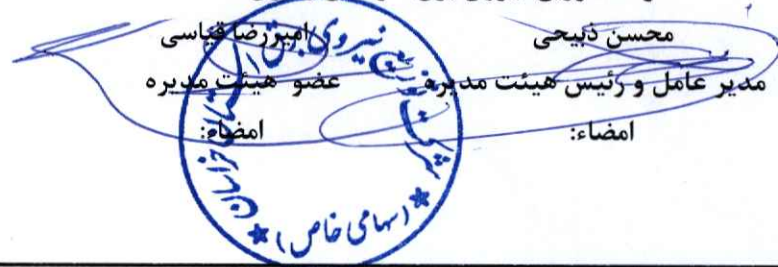 محسن ذبیحی
امیررضا قیاسی
مدیر عامل و رئیس هیئت مدیره
عضو هیئت مدیره
امضاء:
امضاء:
شرکت توزیع نیروی برق استان
(سهامی خاص)